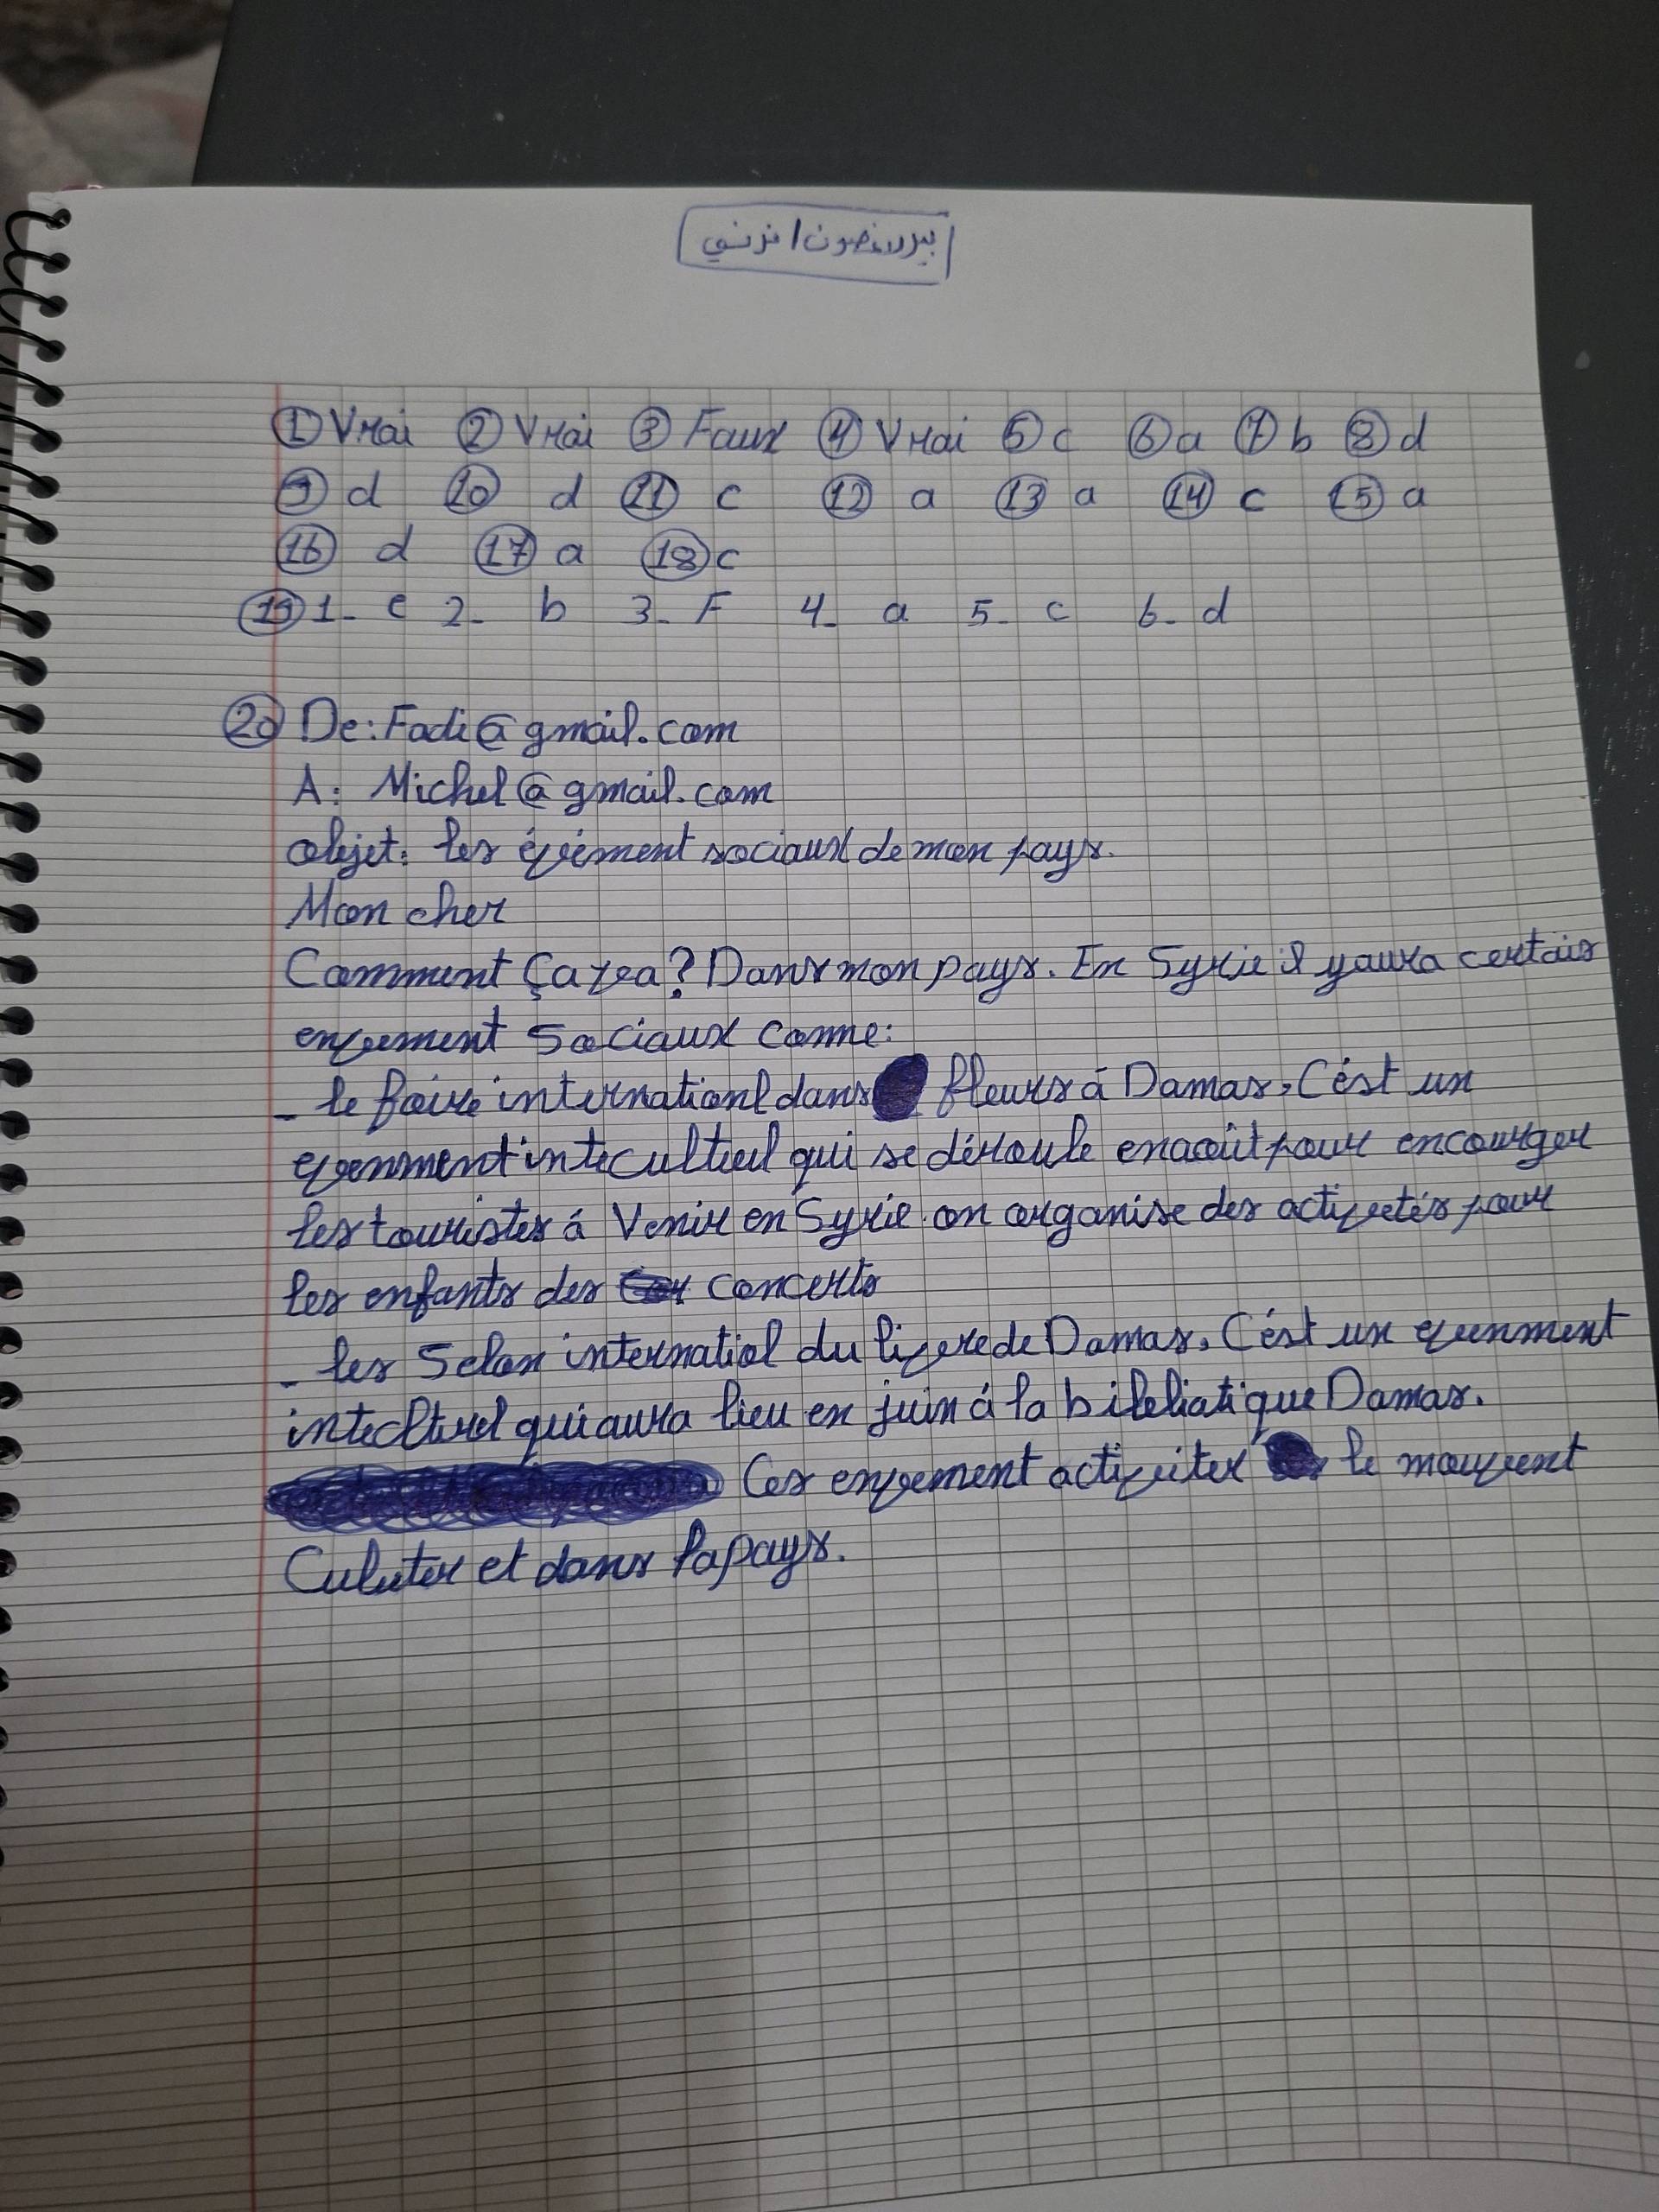 بيرلا غصون / فرنسي
① Vrai ② Vrai ③ Faux ④ Vrai ⑤ c ⑥ a ⑦ b ⑧ d
⑨ d ⑩ d ⑪ c ⑫ a ⑬ a ⑭ c ⑮ a
⑯ d ⑰ a ⑱ c
⑲ 1- e 2- b 3- F 4- a 5- c 6- d
⑳ De: Fadi@gmail.com
A: Michel@gmail.com
objet: les évément sociaux de mon pays.
Mon cher
Comment Ça va? Dans mon pays. En Syrie il yaura certais
envement Sociaux comme:
- le foire internationl dans fleurs á Damas, C'ést un
evenment intecultuel qui se déroule enaoût pour encourger
les touristes á Venir en Syrie on organise des activetés pour
les enfants des concerts
- les Selon internatial du livre de Damas, C'ést un evenment
intecturel qui aura lieu en juin á la biblioatique Damas.
Ces envement activiter le mouvent
Culuter et dans la pays.